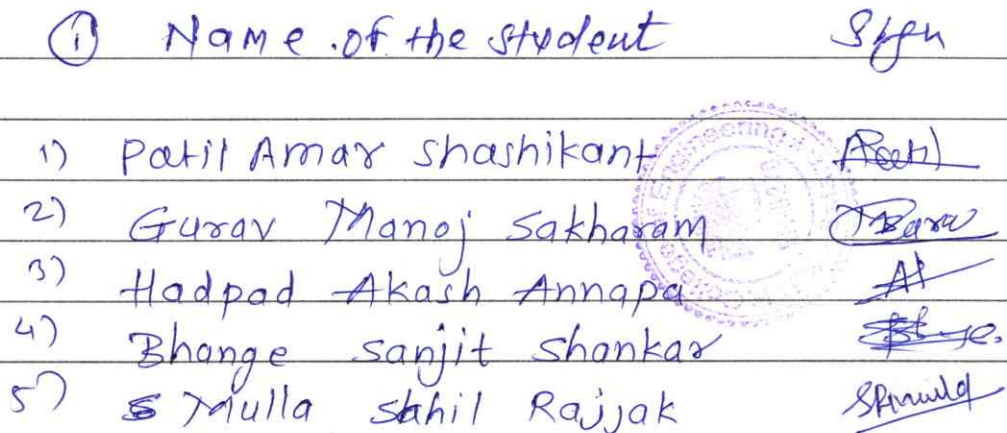 ① Name of the student Sign
1) Patil Amar Shashikant
2) Gurav Manoj Sakharam
3) Hadpad Akash Annapa
4) Bhange Sanjit Shankar
5) Mulla Sahil Rajjak
Engineering